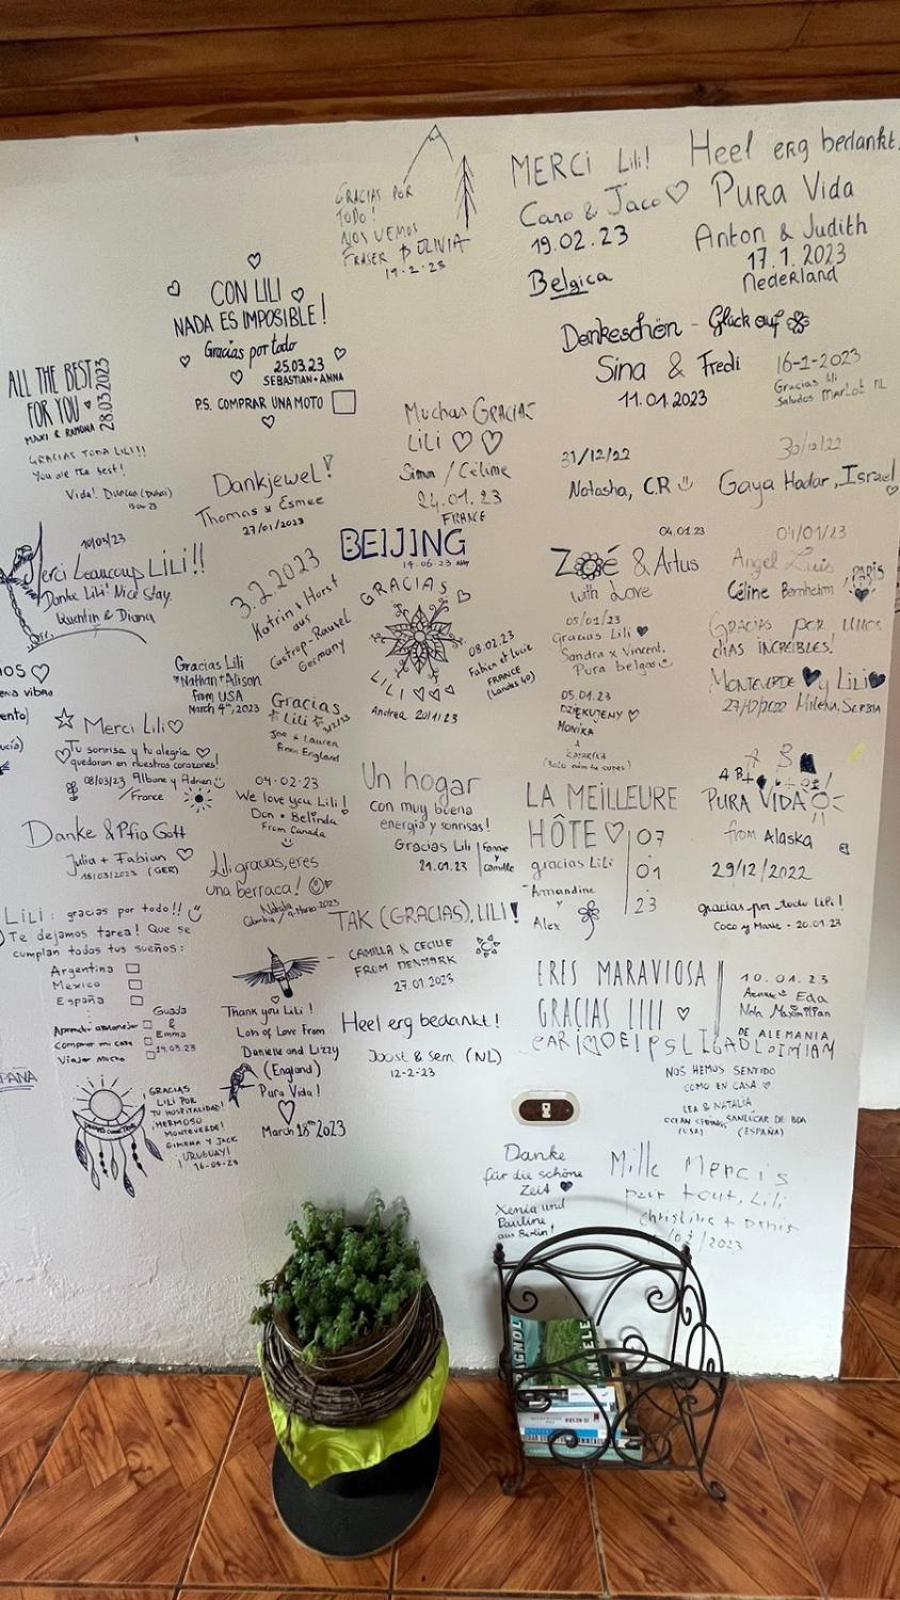 GRACIAS POR
TODO!
NOS VEMOS
FRASER BOLIVIA
19-2-23
MERCI Lili!
Caro & Jaco ♡
19.02.23
Belgica
Heel erg bedankt.
PURA VIDA
Anton & Judith
17.1.2023
Nederland
CON LILI
NADA ES IMPOSIBLE!
Gracias por todo
25.03.23
SEBASTIAN + ANNA
P.S. COMPRAR UNA MOTO
Dankeschön - Glück auf
Sina & Fredi
11.01.2023
16-1-2023
Gracias lili
Saludos Marlot NL
ALL THE BEST
FOR YOU
28.03.2023
MAXI & RAMONA
GRACIAS TODA LILI!!
You are the best!
Muchas GRACIAS
LILI ♡ ♡
Simon / Céline
24.01.23
FRANCE
Dankjewel!
Thomas & Esmee
27/01/2023
31/12/22
Natasha, C.R
30/12/22
Gaya Hadar, Israel
10/03/23
Merci beaucoup LILI!!
Danke Lili! Nice Stay.
Quentin & Diana
3.2.2023
Katrin & Horst
aus
Castrop-Rauxel
Germany
BEIJING
14.06.23
GRACIAS
LILI ♡ ♡ ♡
Andrea 20/1/23
08.02.23
Fabien et Lucie
FRANCE
(Landes 40)
04.01.23
Zoé & Artus
with Love
04/01/23
Angel Luis
Céline Bernheim
PARIS
GRACIAS POR UNOS
DIAS INCREIBLES!
05/01/23
Gracias Lili ♥
Sandra x Vincent.
Pura belgas
05.01.23
DZIĘKUJEMY ♡
MONIKA
MONTEVERDE ♥ y LILI ♥
Milena, SERBIA
Gracias Lili
Nathan + Alison
from USA
March 4th, 2023
Gracias
Lili
Joe & Lauren
from England
Merci Lili ♡
Tu sonrisa y tu alegria
quedaron en nuestros corazones!
08/03/23 Albane y Adrien
/France
04.02.23
We love you Lili!
Don + Belinda
From Canada
Un hogar
con muy buena
energia y sonrisas!
Gracias Lili
29.01.23
Fanne
y
Camille
LA MEILLEURE
HÔTE ♡
gracias Lili
Amandine
y
Alex
07
01
23
PURA VIDA
from Alaska
29/12/2022
gracias por todo Lili!
Coco y Marie - 20.01.23
Danke & Pfia Gott
Julia + Fabian ♡
15/03/2023 (GER)
Lili gracias, eres
una berraca!
LILI: gracias por todo!!
Te dejamos tarea! Que se
cumplan todos tus sueños:
Argentina
Mexico
España
Aprender a manejar
Comprar mi casa
Viajar mucho
Guada
&
Emma
19.03.23
TAK (GRACIAS), LILI!
CAMILLA & CECILIE
FROM DENMARK
27.01.2023
Thank you Lili!
Lots of Love From
Danielle and Lizzy
(England)
Pura Vida!
March 18th 2023
Heel erg bedankt!
Joost & Sem (NL)
12-2-23
ERES MARAVIOSA
GRACIAS LILI ♡
10.01.23
DE ALEMANIA
NOS HEMOS SENTIDO
COMO EN CASA ♡
LEA & NATALIA
OCEAN SPRINGS
(USA)
SANLÚCAR DE BDA
(ESPAÑA)
GRACIAS
LILI POR
TU HOSPITALIDAD!
¡HERMOSO
MONTEVERDE!
GIMENA Y JACK
¡URUGUAY!
16-03-23
Danke
für die schöne
Zeit ♥
Xenia und
Pauline
aus Berlin!
Mille Mercis
pour tout, Lili
Christine + Denis